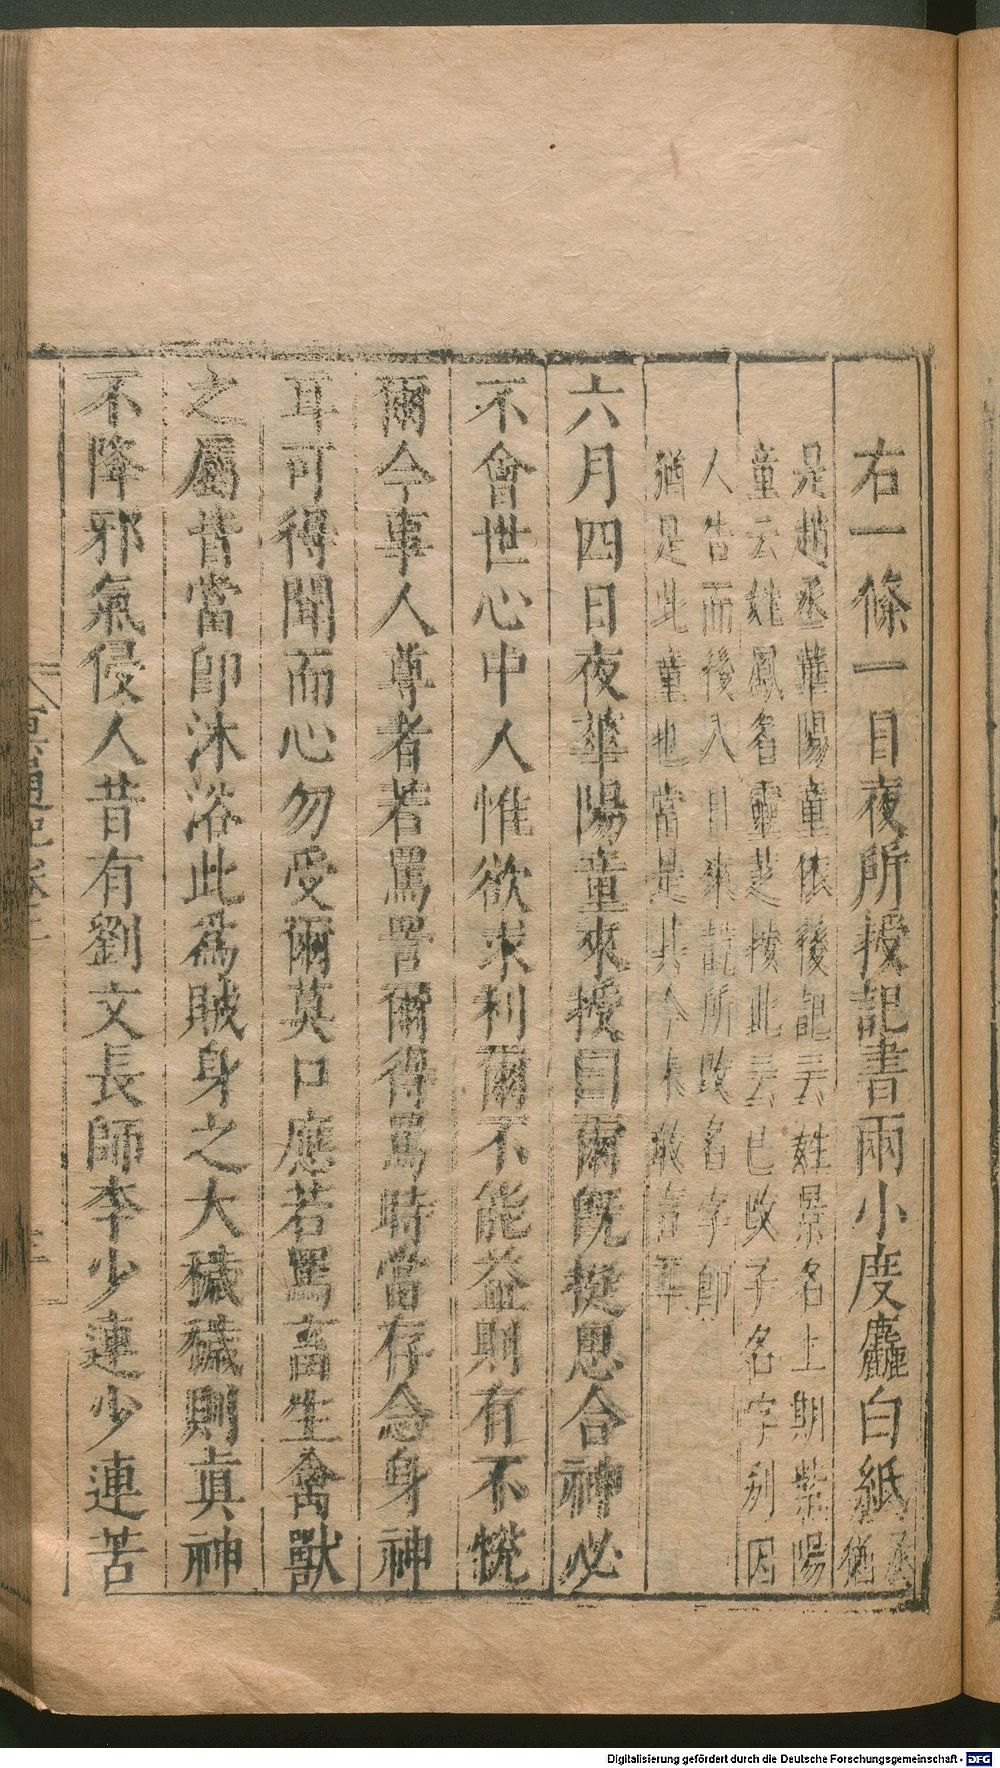 右一條一目夜所授記書兩小度麤白紙
丞猶
是趙丞華陽童依後記云姓景名上期紫陽
童云姓鳳名靈芝按此云已改子名字别因
人告而後入目來説所改名字即
猶是此童也當是其今未敢言耳
六月四日夜華陽童來授曰爾旣挺思合神必
不會世心中人惟欲求利爾不能益則有不悦
爾今事人尊者若罵詈爾得罵時當存念身神
耳可得聞而心勿受爾莫口應若罵畜生禽獸
之屬皆當卽沐浴此爲賊身之大穢穢則真神
不降邪氣侵人昔有劉文長師李少連少連苦
Digitalisierung gefördert durch die Deutsche Forschungsgemeinschaft - DFG